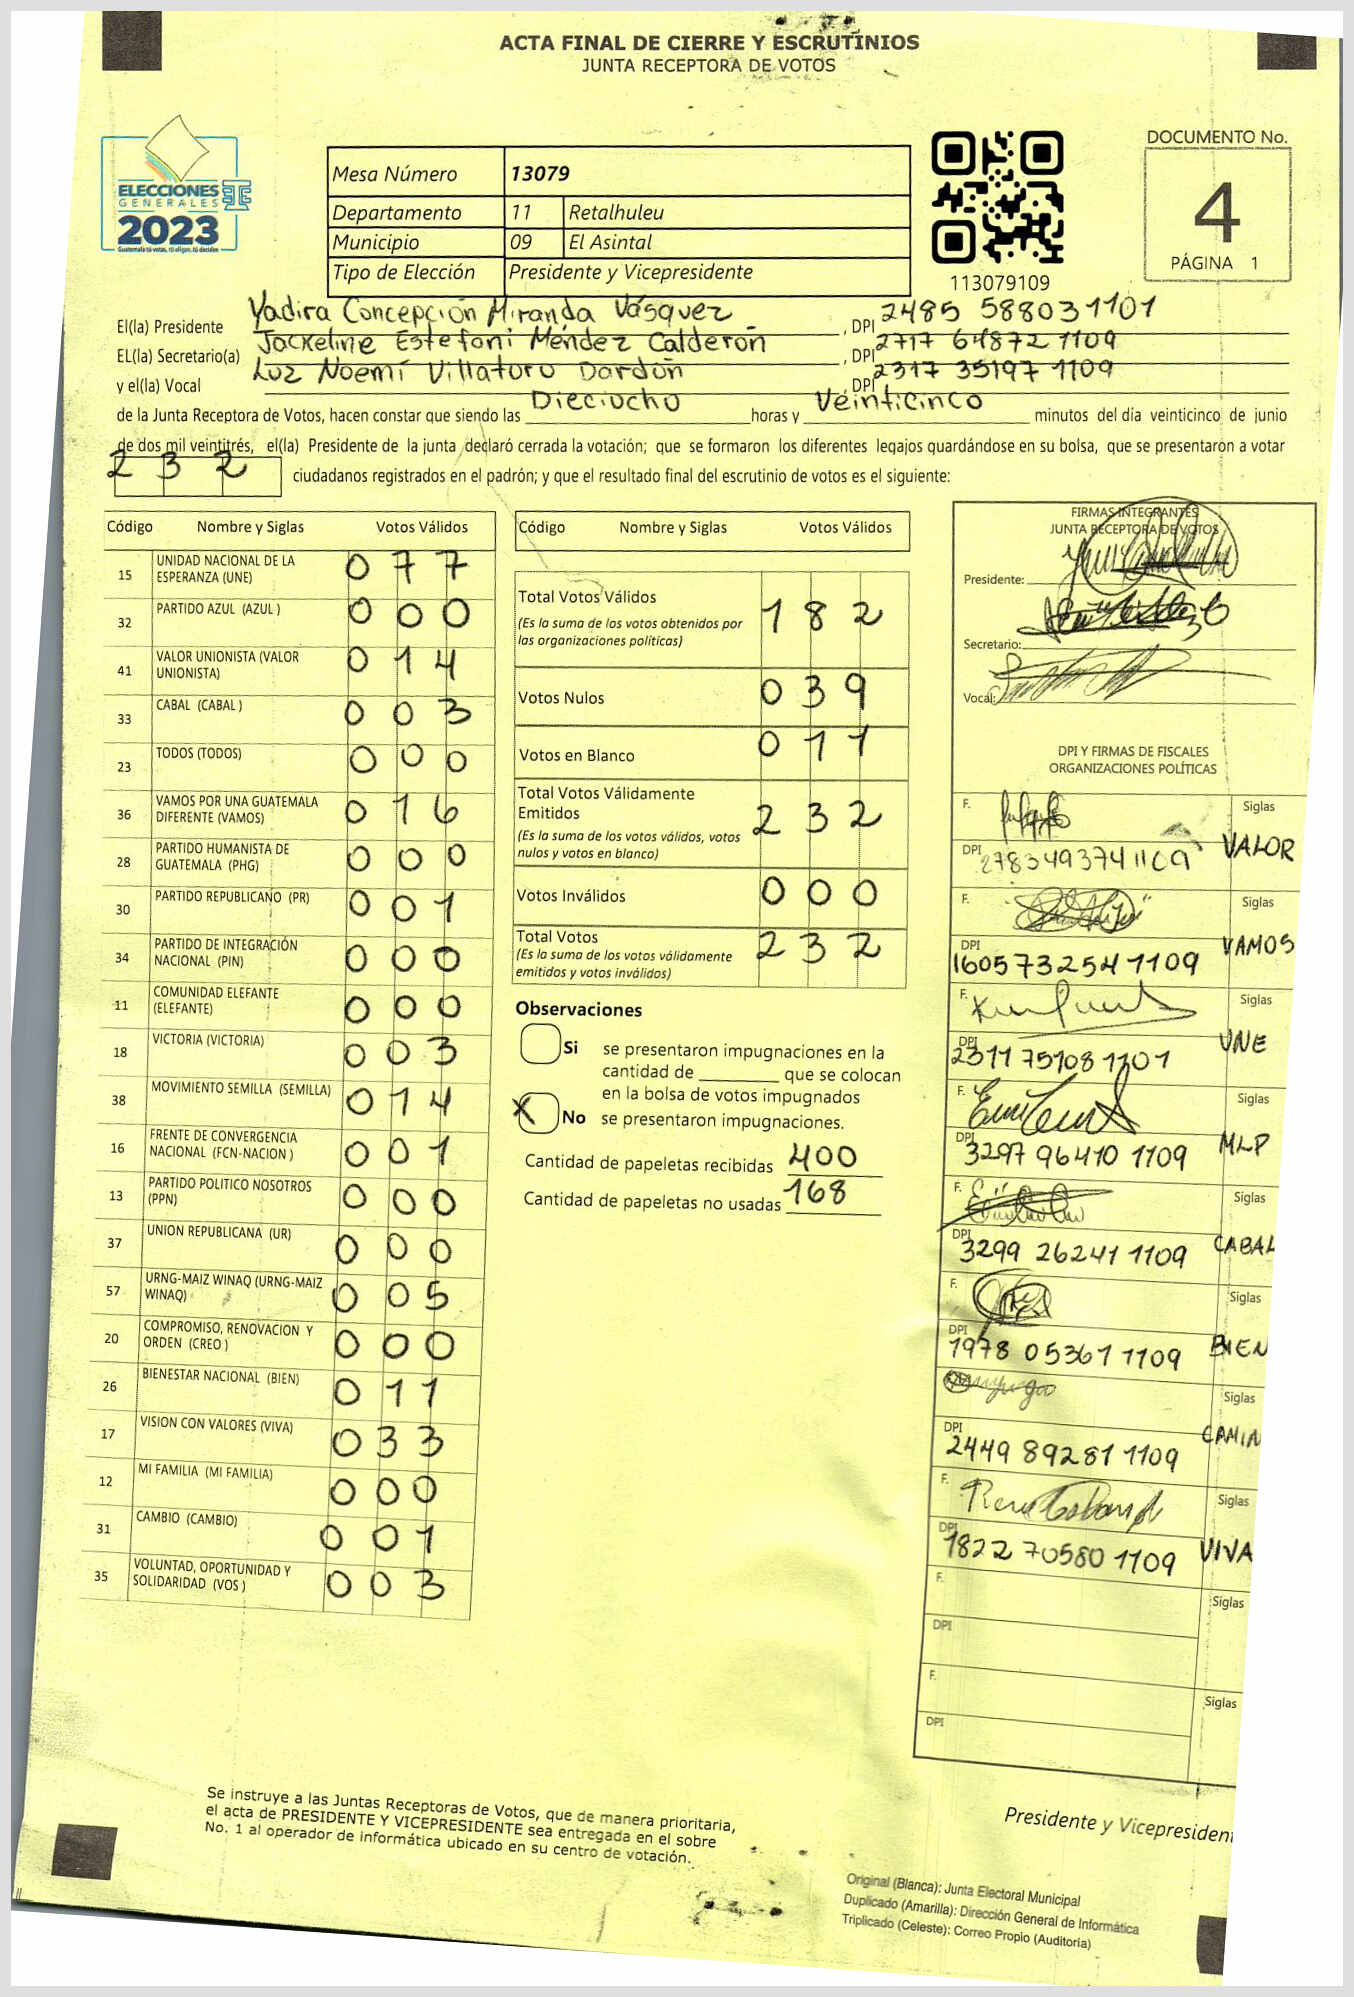 ACTA FINAL DE CIERRE Y ESCRUTINIOS
JUNTA RECEPTORA DE VOTOS
ELECCIONES
GENERALES
2023
Guatemala tú votas, tú eliges, tú decides
Mesa Número 13079
Departamento 11 Retalhuleu
Municipio 09 El Asintal
Tipo de Elección Presidente y Vicepresidente
113079109
DOCUMENTO No.
4
PÁGINA 1
El(la) Presidente Yadira Concepción Miranda Vásquez, DPI 2485 58803 1101
EL(la) Secretario(a) Jackeline Estefani Méndez Calderón, DPI 2717 64872 1109
y el(la) Vocal Luz Noemí Villatoro Dardón DPI 2317 35197 1109
de la Junta Receptora de Votos, hacen constar que siendo las Dieciocho horas y Veinticinco minutos del día veinticinco de junio
de dos mil veintitrés, el(la) Presidente de la junta declaró cerrada la votación; que se formaron los diferentes legajos guardándose en su bolsa, que se presentaron a votar
232 ciudadanos registrados en el padrón; y que el resultado final del escrutinio de votos es el siguiente:
Código Nombre y Siglas Votos Válidos
15 UNIDAD NACIONAL DE LA ESPERANZA (UNE) 077
32 PARTIDO AZUL (AZUL ) 000
41 VALOR UNIONISTA (VALOR UNIONISTA) 014
33 CABAL (CABAL ) 003
23 TODOS (TODOS) 000
36 VAMOS POR UNA GUATEMALA DIFERENTE (VAMOS) 016
28 PARTIDO HUMANISTA DE GUATEMALA (PHG) 000
30 PARTIDO REPUBLICANO (PR) 001
34 PARTIDO DE INTEGRACIÓN NACIONAL (PIN) 000
11 COMUNIDAD ELEFANTE (ELEFANTE) 000
18 VICTORIA (VICTORIA) 003
38 MOVIMIENTO SEMILLA (SEMILLA) 014
16 FRENTE DE CONVERGENCIA NACIONAL (FCN-NACION ) 001
13 PARTIDO POLITICO NOSOTROS (PPN) 000
37 UNION REPUBLICANA (UR) 000
57 URNG-MAIZ WINAQ (URNG-MAIZ WINAQ) 005
20 COMPROMISO, RENOVACION Y ORDEN (CREO ) 000
26 BIENESTAR NACIONAL (BIEN) 011
17 VISION CON VALORES (VIVA) 033
12 MI FAMILIA (MI FAMILIA) 000
31 CAMBIO (CAMBIO) 001
35 VOLUNTAD, OPORTUNIDAD Y SOLIDARIDAD (VOS ) 003
Código Nombre y Siglas Votos Válidos
Total Votos Válidos 182
(Es la suma de los votos obtenidos por
las organizaciones políticas)
Votos Nulos 039
Votos en Blanco 011
Total Votos Válidamente
Emitidos 232
(Es la suma de los votos válidos, votos
nulos y votos en blanco)
Votos Inválidos 000
Total Votos 232
(Es la suma de los votos válidamente
emitidos y votos inválidos)
Observaciones
Si se presentaron impugnaciones en la
cantidad de ________ que se colocan
en la bolsa de votos impugnados
X No se presentaron impugnaciones.
Cantidad de papeletas recibidas 400
Cantidad de papeletas no usadas 168
FIRMAS INTEGRANTES
JUNTA RECEPTORA DE VOTOS
Presidente:
Secretario:
Vocal:
DPI Y FIRMAS DE FISCALES
ORGANIZACIONES POLÍTICAS
F. Siglas
DPI 2783493741109 VALOR
F. Siglas
DPI 1605 73254 1109 VAMOS
F. Siglas
DPI 2311 75108 1101 UNE
F. Siglas
DPI 3297 96410 1109 MLP
F. Siglas
DPI 3299 26241 1109 CABAL
F. Siglas
DPI 1978 05361 1109 BIEN
Siglas
DPI 2449 89281 1109 CAMIN
F. Siglas
DPI 1822 70580 1109 VIVA
F. Siglas
DPI
F. Siglas
DPI
Se instruye a las Juntas Receptoras de Votos, que de manera prioritaria,
el acta de PRESIDENTE Y VICEPRESIDENTE sea entregada en el sobre
No. 1 al operador de informática ubicado en su centro de votación.
Presidente y Vicepresident
Original (Blanca): Junta Electoral Municipal
Duplicado (Amarilla): Dirección General de Informática
Triplicado (Celeste): Correo Propio (Auditoría)